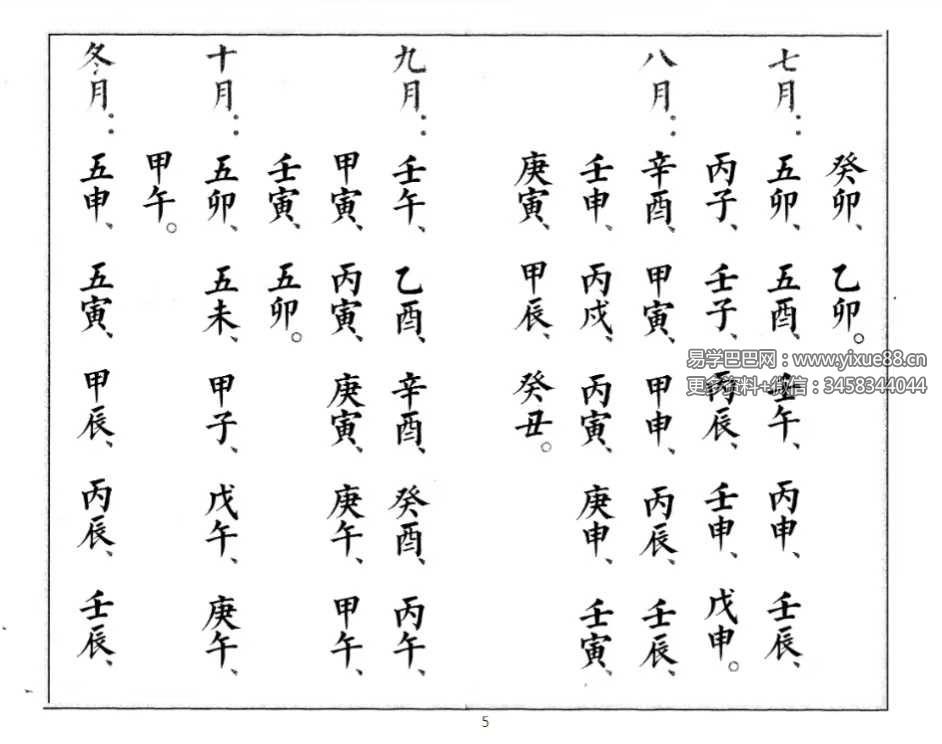 癸卯、乙卯。
七月：五卯、五酉、壬午、丙申、壬辰、
丙子、壬子、丙辰、壬申、戊申。
八月：辛酉、甲寅、甲申、丙辰、壬辰、
壬申、丙戍、丙寅、庚申、壬寅、
庚寅、甲辰、癸丑。
九月：壬午、乙酉、辛酉、癸酉、丙午、
甲寅、丙寅、庚寅、庚午、甲午、
壬寅、五卯。
十月：五卯、五未、甲子、戊午、庚午、
甲午。
冬月：五申、五寅、甲辰、丙辰、壬辰、
易学巴巴网：www.yixue88.cn
更多资料+微信：3458344044
5